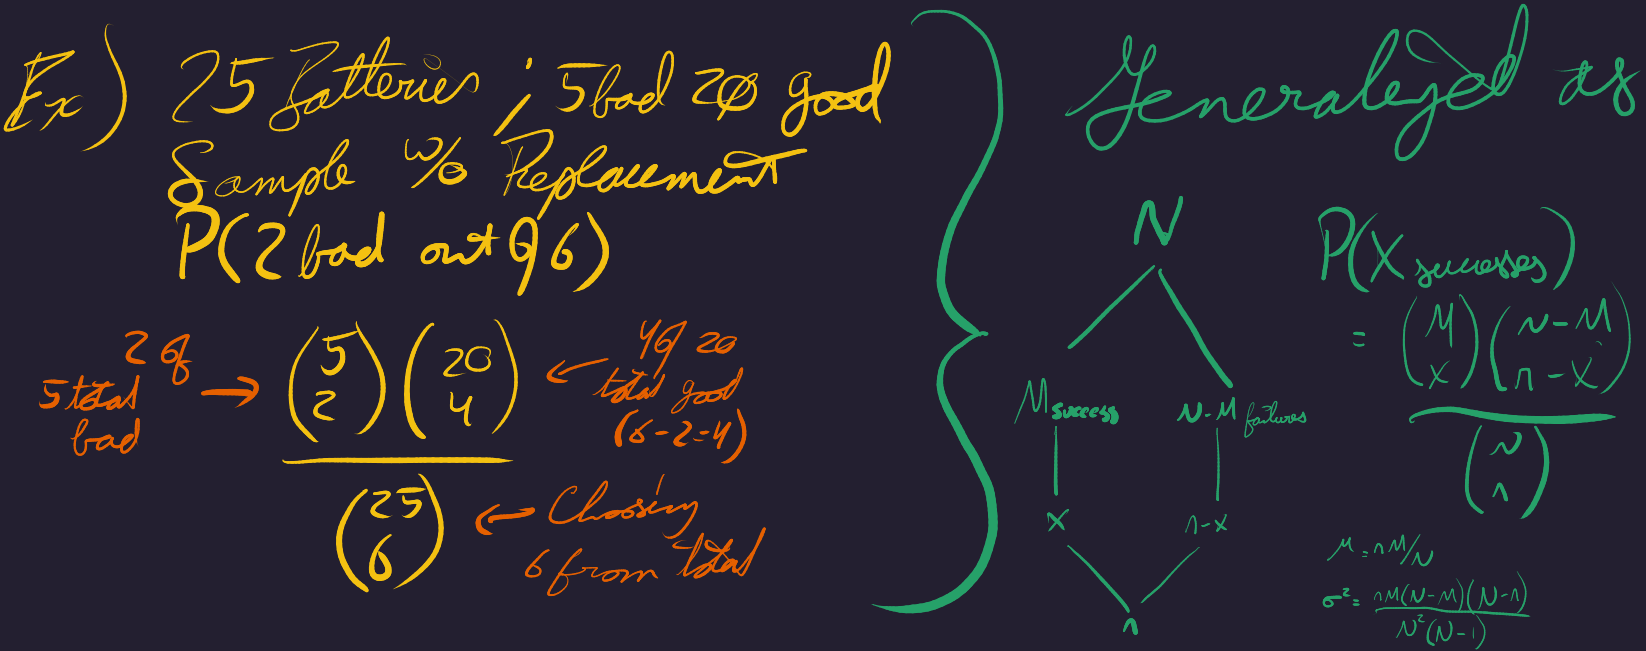 Ex) 25 Batteries ; 5 bad 20 good
Sample w/o Replacement
P(2 bad out of 6)
2 of
5 total
bad
→
(5 2)(20 4)
←
4 of 20
total good
(6-2=4)
(25 6)
← Choosing
6 from total
Generalized as
N
M success
N-M failures
x
n-x
n
P(X successes)
= (M x)(N-M n-x)
(N n)
μ = nM/N
σ² = nM(N-M)(N-n)
N²(N-1)